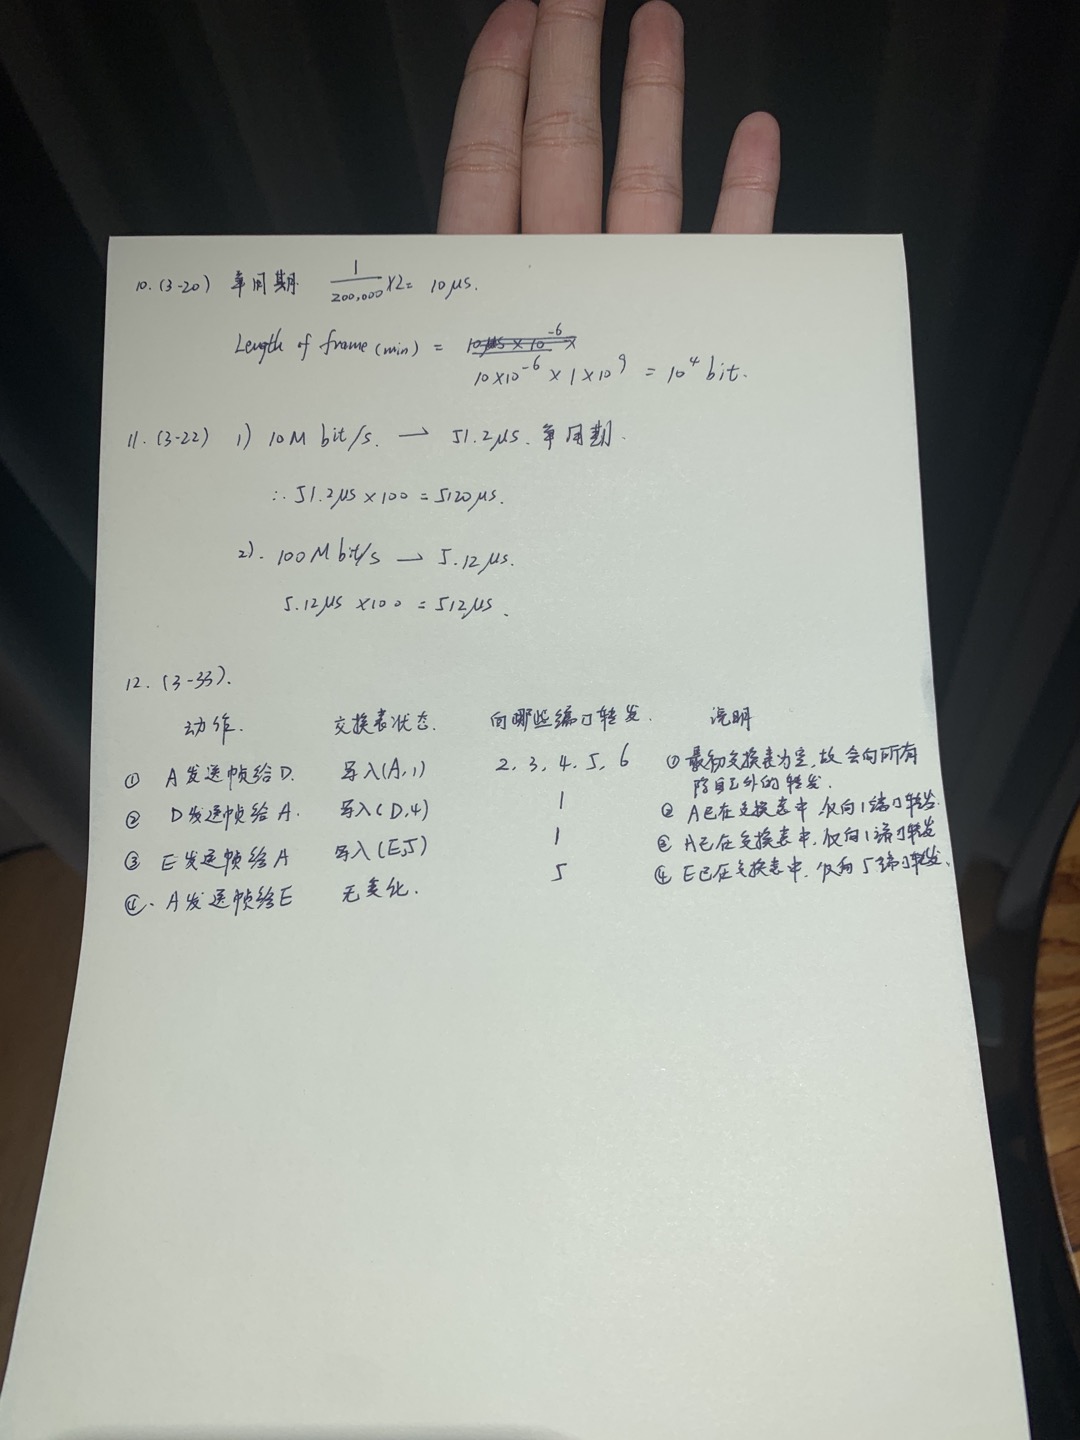 10. (3-20) 争用期 1/200,000 ×2= 10μs.
Length of frame (min) = 10μs × 10^-6 ×
10×10^-6 × 1×10^9 = 10^4 bit.
11. (3-22) 1) 10M bit/s. → 51.2μs. 争用期.
∴ 51.2μs × 100 = 5120μs.
2). 100M bit/s → 5.12μs.
5.12μs ×100 = 512μs.
12. (3-33).
动作. 交换表状态. 向哪些端口转发. 说明
① A发送帧给D. 写入(A,1) 2, 3, 4, 5, 6 ①最初交换表为空,故会向所有
除自己外的转发.
② D发送帧给A. 写入(D,4) 1 ② A已在交换表中,仅向1端口转发.
③ E发送帧给A 写入(E,5) 1 ③ A已在交换表中,仅向1端口转发
④. A发送帧给E 无变化. 5 ④ E已在交换表中,仅向5端口转发.